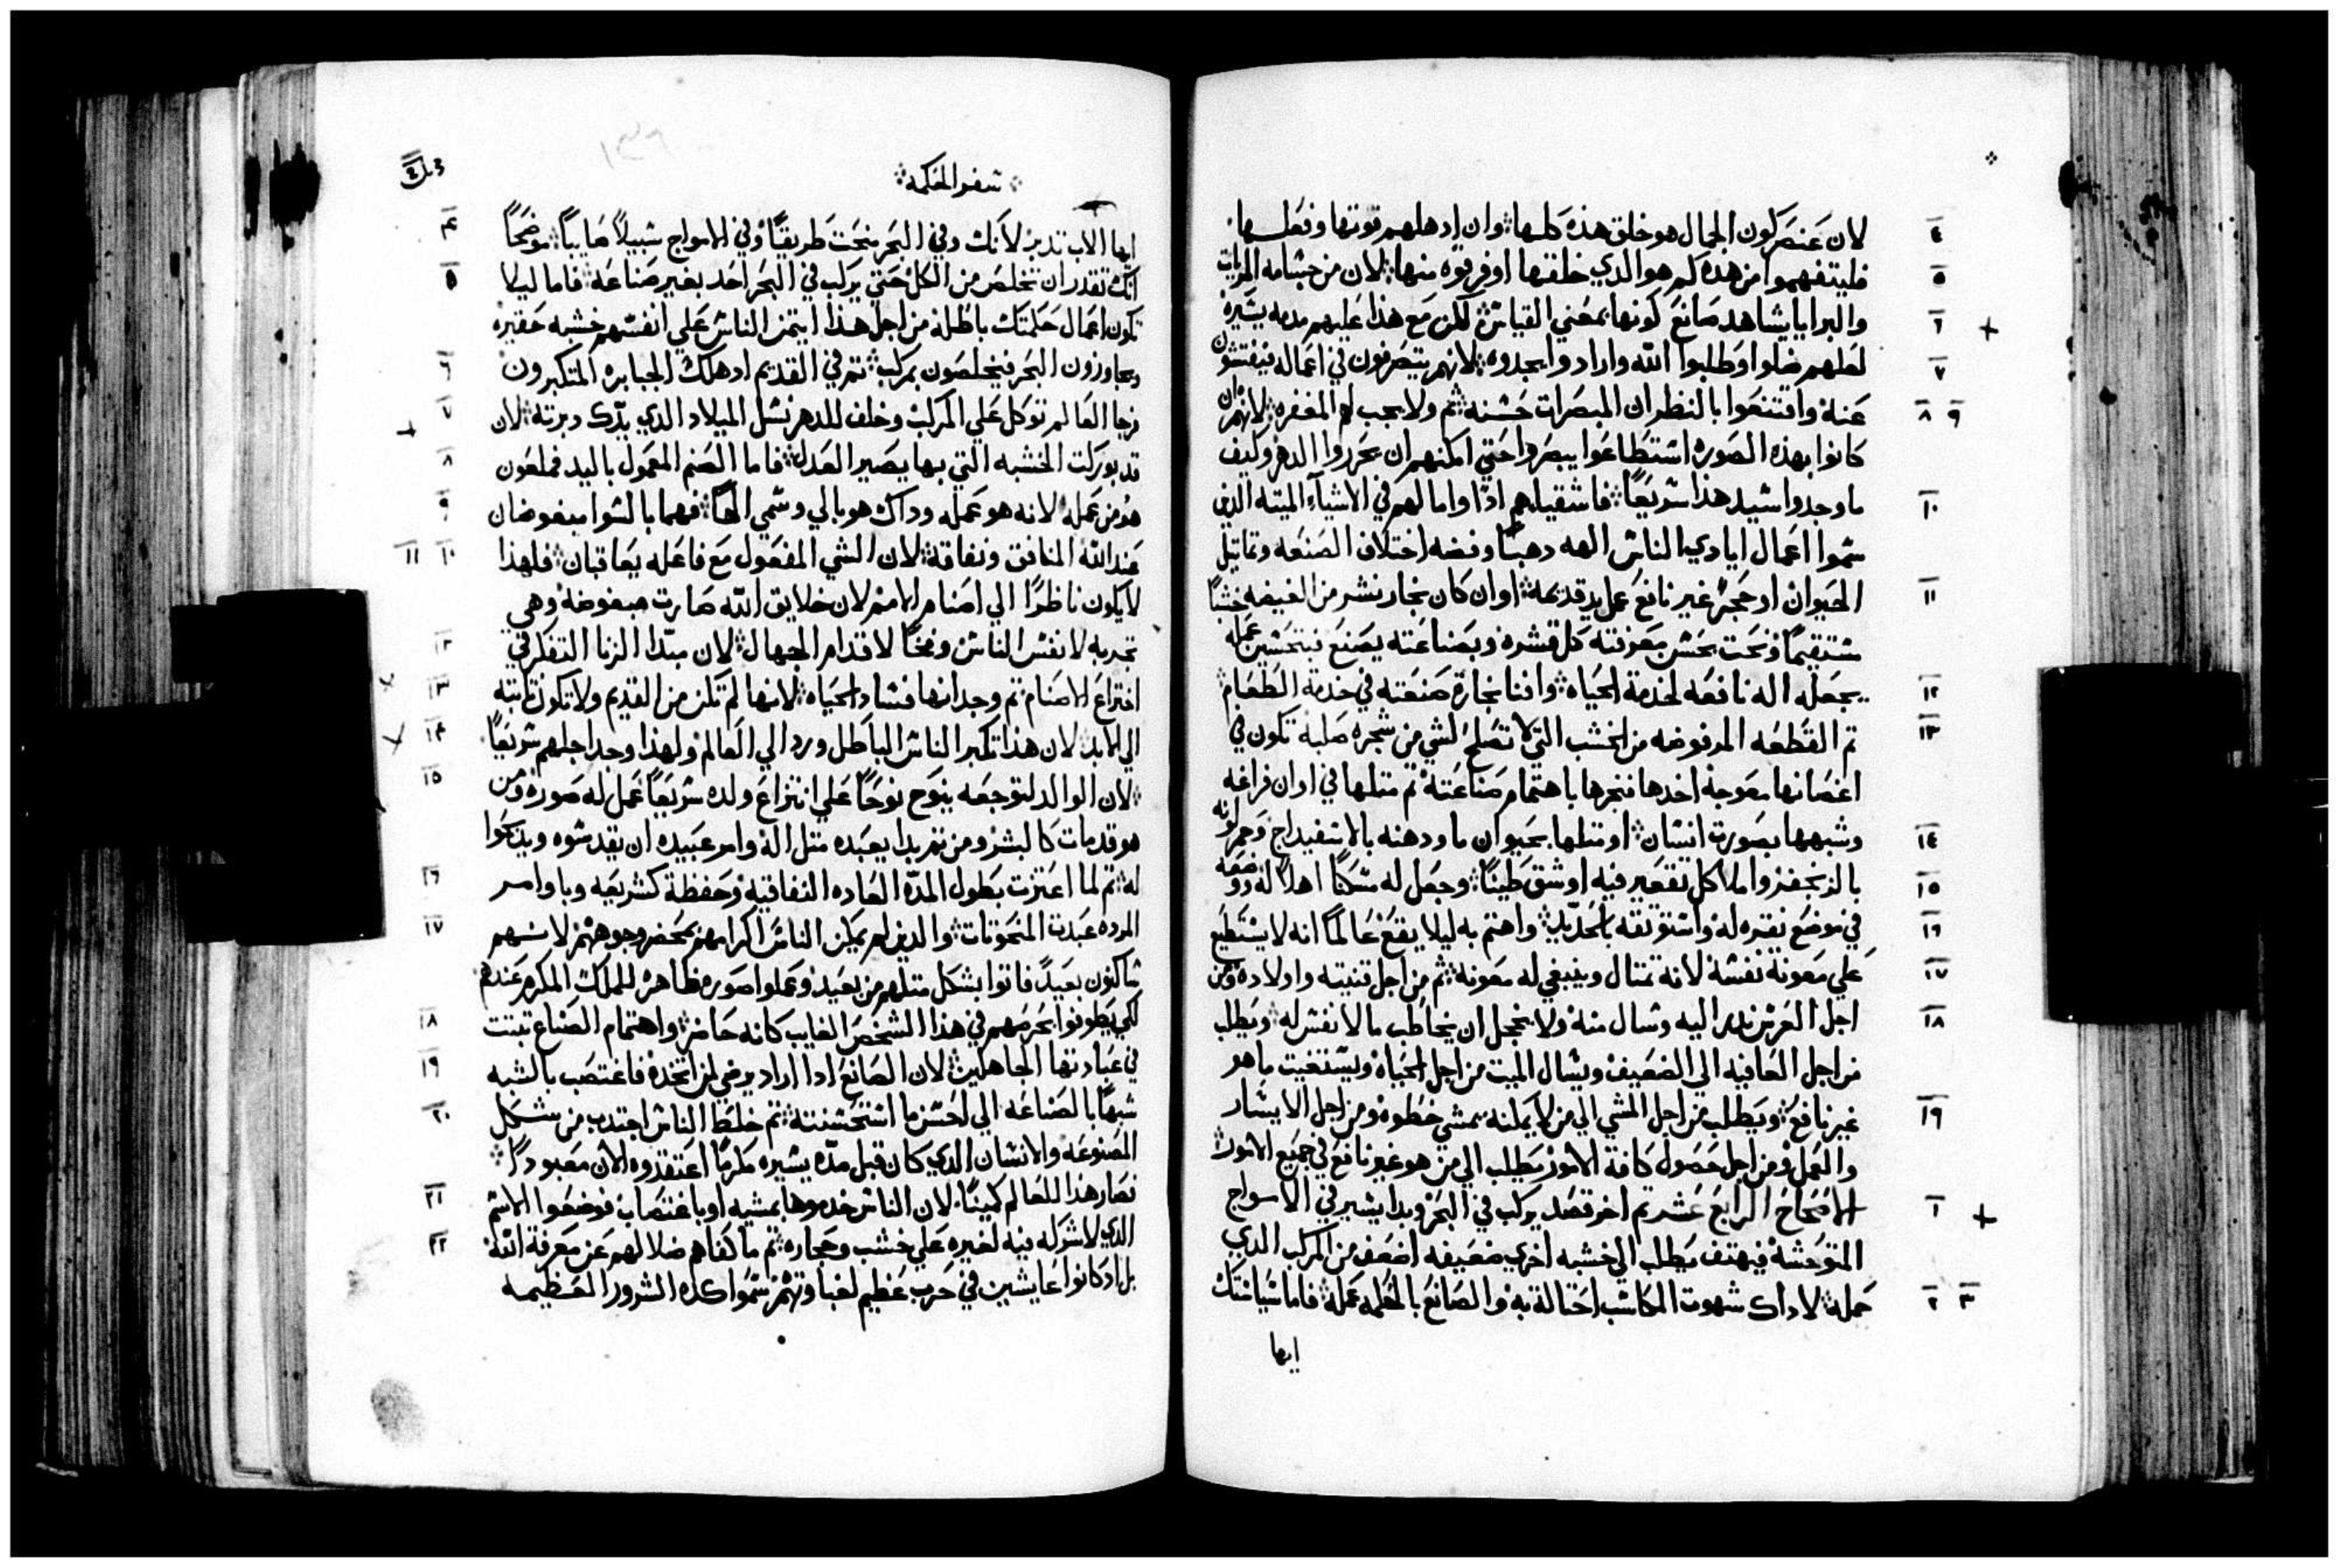 لان عنصر كون الجمال هو خلق هذه كلها وان ادهلهم قوتها وفعلها ٤
فليتفهموا من هذه كم هو الدي خلقها اوفر قوه منها لان من جسامه المريات ٥
والبرايا يشاهد صانع كونها بمعني القياس لكن مع هذا عليهم مدمه يسيره ٦
لعلهم ضلوا وطلبوا الله وارادوا يجدوه لانهم يتصرفون في اعماله فيفتشون ٧
عنه واقتنعوا بالنظر ان المبصرات حسنه ثم ولا يجب لهم المغفره لانهم ان ٨ ٩
كانوا بهذه الصوره استطاعوا يبصروا حتي امكنهم ان يحرروا الدهر وكيف
ما وجدوا سيد هذا سريعا فاشقياهم ادا واما لهم في الاشياء الميته الدين ١٠
سموا اعمال ايادي الناس الهه دهبا وفضه اختلاف الصنعه وتماتيل
الحيوان او حجر غير نافع عمل يد قديمه او ان كان نجار نشر من الغيضه خشبا ١١
مستقيما ونحت بحسن معرفته كل قشره وبصناعته يصنع فيتحسين عمله
يجعله اله نافعه لخدمة الحياه وافنا نجارة صنعته في خدمة الطعام ١٢
تم القطعه المرفوضه من الخشب التي لا تصلح لشي من شجره صلبه تكون في ١٣
اغصانها معوجه اخدها فنجرها باهتمام صناعته تم متلها في اوان فراغه
وشبهها بصورت انسان او متلها بحيوان ما ودهنه بالاسفيداج وحمر لونه ١٤
بالزنجفر واملا كل تقعير فيه او شق طينا وجعل له مسكنا اهلا له ووضعه ١٥
في موضع نقره له واستوثقه بالحديد واهتم به ليلا يقع عالما انه لا يستطيع ١٦
علي معونة نفسه لانه تمتال وينبغي له معونه ثم من اجل قنيته واولاده ومن ١٧
اجل العرس ندر اليه وسال منه ولا يخجل ان يخاطب ما لا نفس له ويطلب ١٨
من اجل العافيه الي الضعيف ويسال الميت من اجل الحياه ويستغيت ما هو
غير نافع ويطلب من اجل المشي الي من لا يمكنه يمشي خطوه ومن اجل الايسار ١٩
والعمل ومن اجل حصول كافة الامور يطلب الي من هو غير نافع في جميع الامور
الاصحاح الرابع عشر تم اخر قصد يركب في البحر وبدا يسير في الامواج ١
المتوحشه فيهتف يطلب الي خشبه اخري ضعيفه اضعف من المركب الدي
حمله لا داك شهوت المكاسب احتالة به والصانع بالحكمه عمله فاما سياستك ٢ ٣
ايها
سفر الحكمه
ايها الاب تدبر لانك وفي البحر منحت طريقا وفي الامواج سبيلا صايبا موضحا ٤
انك تقدر ان تخلص من الكل حتي يركب في البحر احد بغير صناعه فاما ليلا ٥
تكون اعمال حكمتك باطله من اجل هذا ايتمن الناس علي انفسهم خشبه حقيره
ويجاوزون البحر فيخلصون بمركب تم في القديم اد هلك الجبابره المتكبرون ٦
رجا العالم توكل علي المركب وخلف للدهر نسل الميلاد الدي يدك دبرته لان ٧
قد بوركت الخشبه التي بها يصير العدل فاما الصنم المعمول باليد فملعون ٨
هو من عمله لانه هو عمله وداك هو بالي وسمي الها فهما بالسوا مبغوضان ٩
عند الله المنافق ونفاقه لان الشي المفعول مع فاعله يعاقبان فلهذا ١٠ ١١
لا يكون ناظرا الي اصنام الامم لان خلايق الله صارت مبغوضه وهي
تجربه لانفس الناس وفخا لاقدام الجهال لان مبدا الزنا التفكر في ١٢
اختراع الاصنام تم وجدانها فساد الحياه لانها لم تكن من القديم ولا تكون تابته ١٣
الي الابد لان هذا تكبر الناس الباطل ورد الي العالم ولهذا وجد اجلهم سريعا ١٤
لان الوالد لتوجعه ينوح نوحا علي انتزاع ولده سريعا عمل له صوره ومن ١٥
هو قد مات كالبشر ومن تم بدا يعبده متل اله وامر عبيده ان يقدسوه ويدعوا
له تم لما اعتزت بطول المده العاده النفاقيه وحفظة كشريعه وباوامر ١٦
المرده عبدت المنحوتات والدين لم يمكن الناس اكرامهم بمحضر وجوههم لانهم ١٧
ساكنون بعيدا فاتوا بشكل متلهم من بعيد وعملوا صوره ظاهره للملك المكرم عندهم
لكي يكونوا بحرصهم في هذا الشخص الغايب كانه حاضر واهتمام الصناع تبتت ١٨
في عبادتها الجاهلين لان الصانع ادا اراد يرضي لمن اتخده فاغتصب بالشبه ١٩
شبها بالصناعه الي احسن ما استحسنته تم خلط الناس اجتدب من شكل ٢٠
المصنوعه والانسان الدي كان قبل مده يسيره مكرما اعتقدوه الان معبودا
فصار هذا للعالم كمينا لان الناس خدموها بمشيه او باغتصاب فوضعوا الاسم ٢١
الدي لا شركه فيه لغيره علي خشب وحجاره تم ما كفاهم ضلالهم عن معرفة الله ٢٢
بل اد كانوا عايشين في حرب عظيم لغباوتهم سموا كده الشرور العظيمه